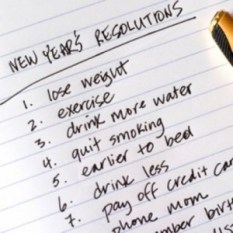 NEW YEAR'S RESOLUTIONS
1. lose weight
2. exercise
3. drink more water
4. quit smoking
5. earlier to bed
6. drink less
7. pay off credit car
phone mom
mber birt